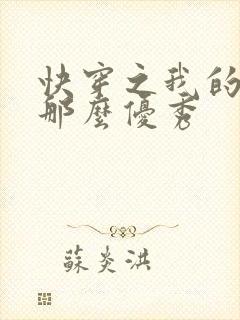 快穿之我的
那麼優秀
蘇炎洪